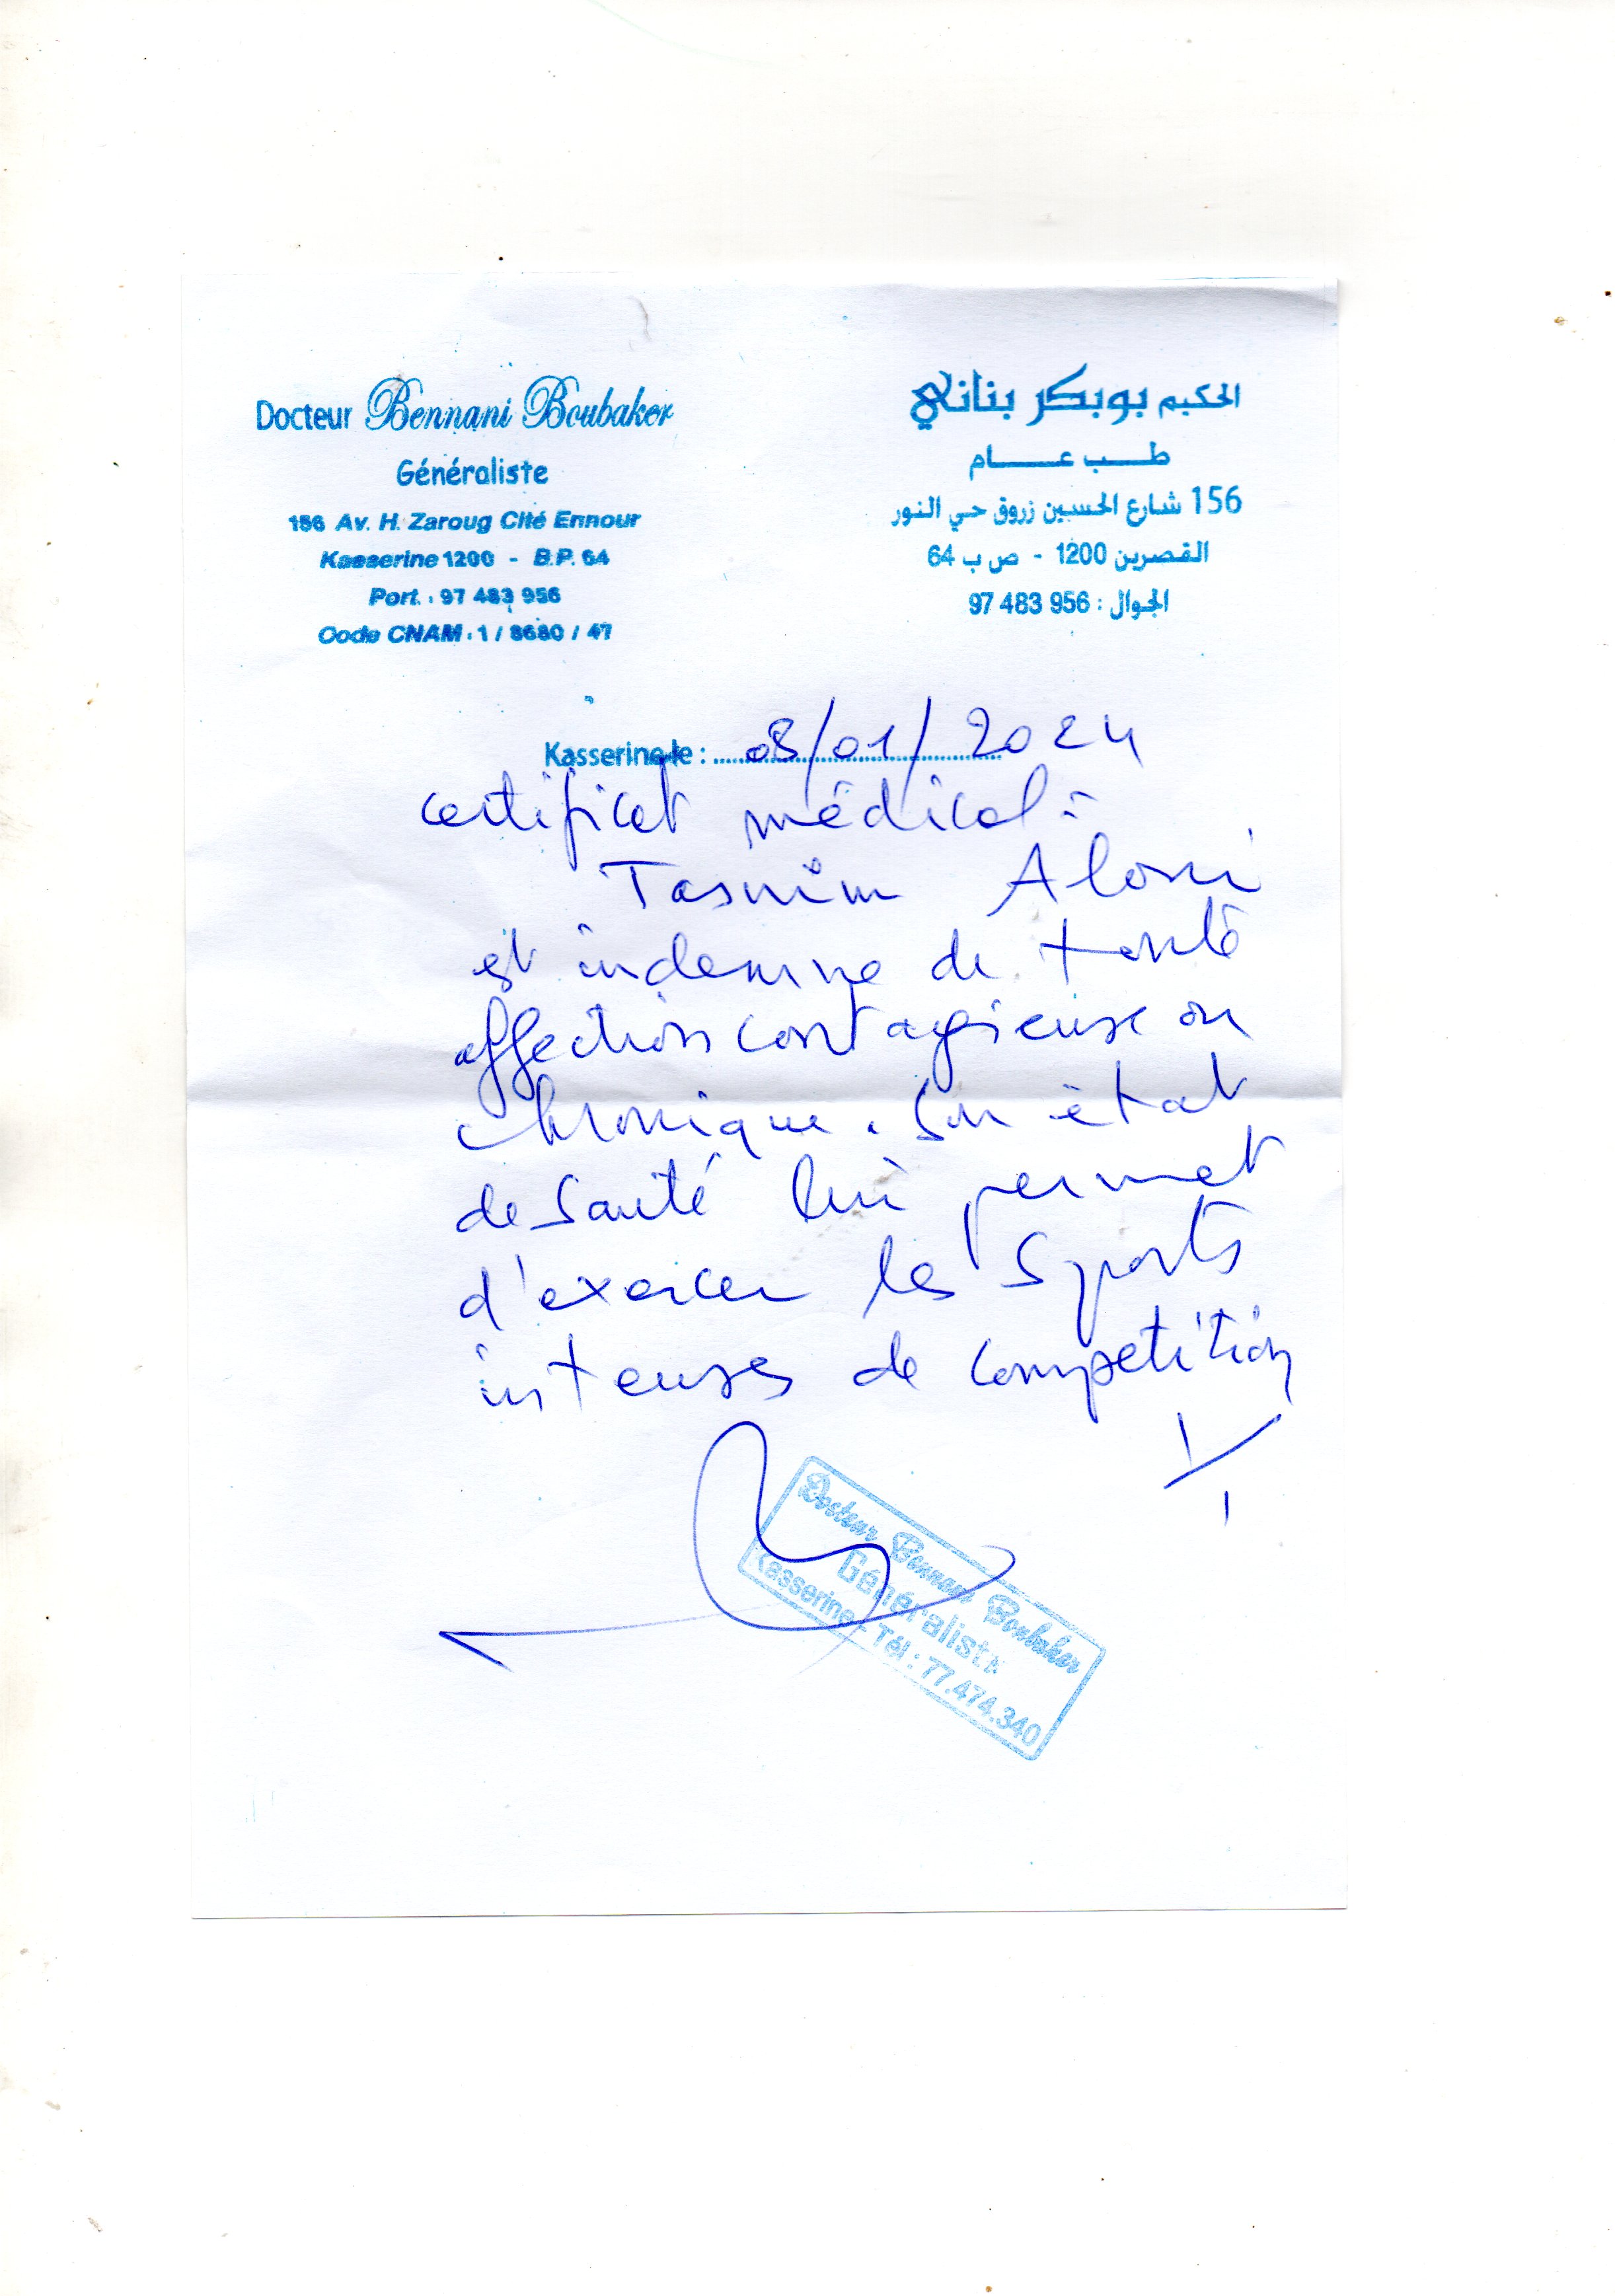 Docteur Bennani Boubaker
Généraliste
156 Av. H. Zaroug Cité Ennour
Kasserine 1200 - B.P. 64
Port. : 97 483 956
Code CNAM : 1 / 8680 / 47
الحكيم بوبكر بناني
طب عام
156 شارع الحسين زروق حي النور
القصرين 1200 - ص ب 64
الجوال : 97 483 956
Kasserine le : 08/01/2024
certificat médical :
Tasnim
est indemne de toute
affection contagieuse ou
chronique. Son état
de Santé lui permet
d'exercer les Sports
intenses de compétition
Docteur Bennani Boubaker
Généraliste
Kasserine - Tél : 77.474.340